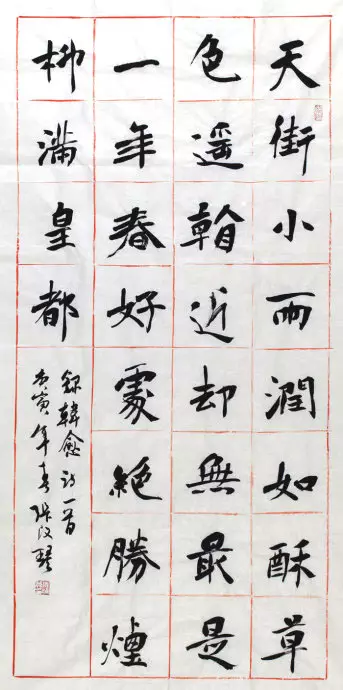 天街小雨潤如酥草
色遥看近却無最是
一年春好處絶勝煙
柳滿皇都
録韓愈诗一首
庚寅年春张